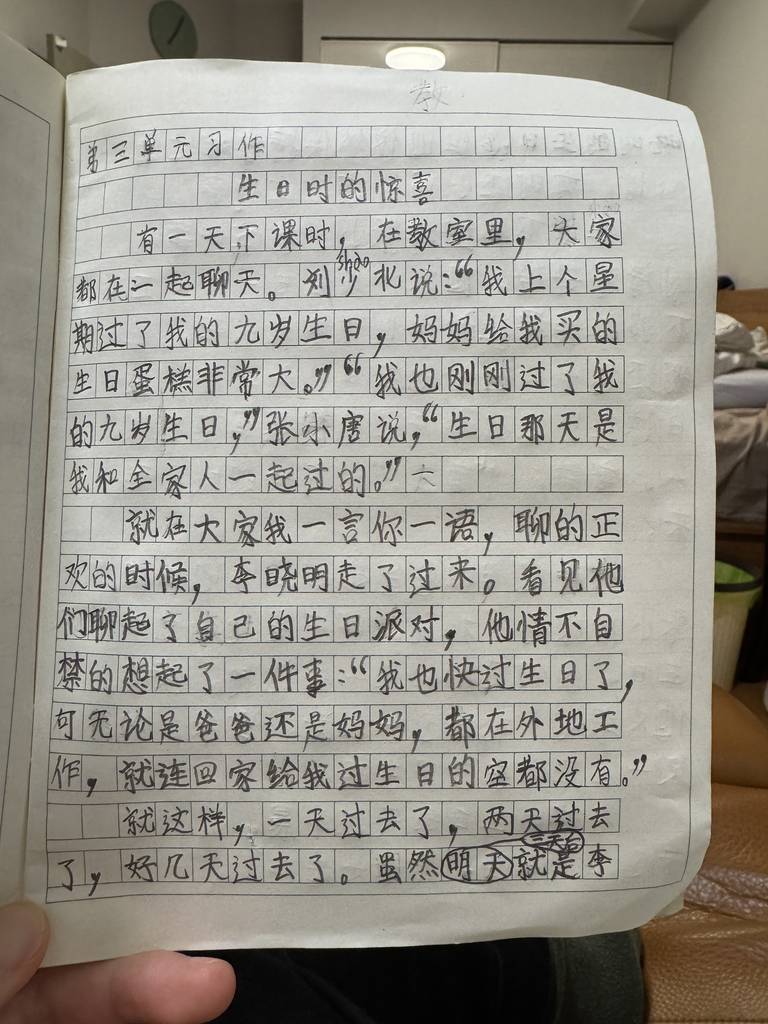 教
第三单元习作
生日时的惊喜
有一天下课时，在教室里，大家
都在一起聊天。刘少shao北说：“我上个星
期过了我的九岁生日，妈妈给我买的
生日蛋糕非常大。”“我也刚刚过了我
的九岁生日，”张小唐说，“生日那天是
我和全家人一起过的。”
就在大家我一言你一语，聊的正
欢的时候，李晓明走了过来。看见他
们聊起了自己的生日派对，他情不自
禁的想起了一件事：“我也快过生日了，
可无论是爸爸还是妈妈，都在外地工
作，就连回家给我过生日的空都没有。”
就这样，一天过去了，两天过去
了，好几天过去了。虽然明天三天后就是李